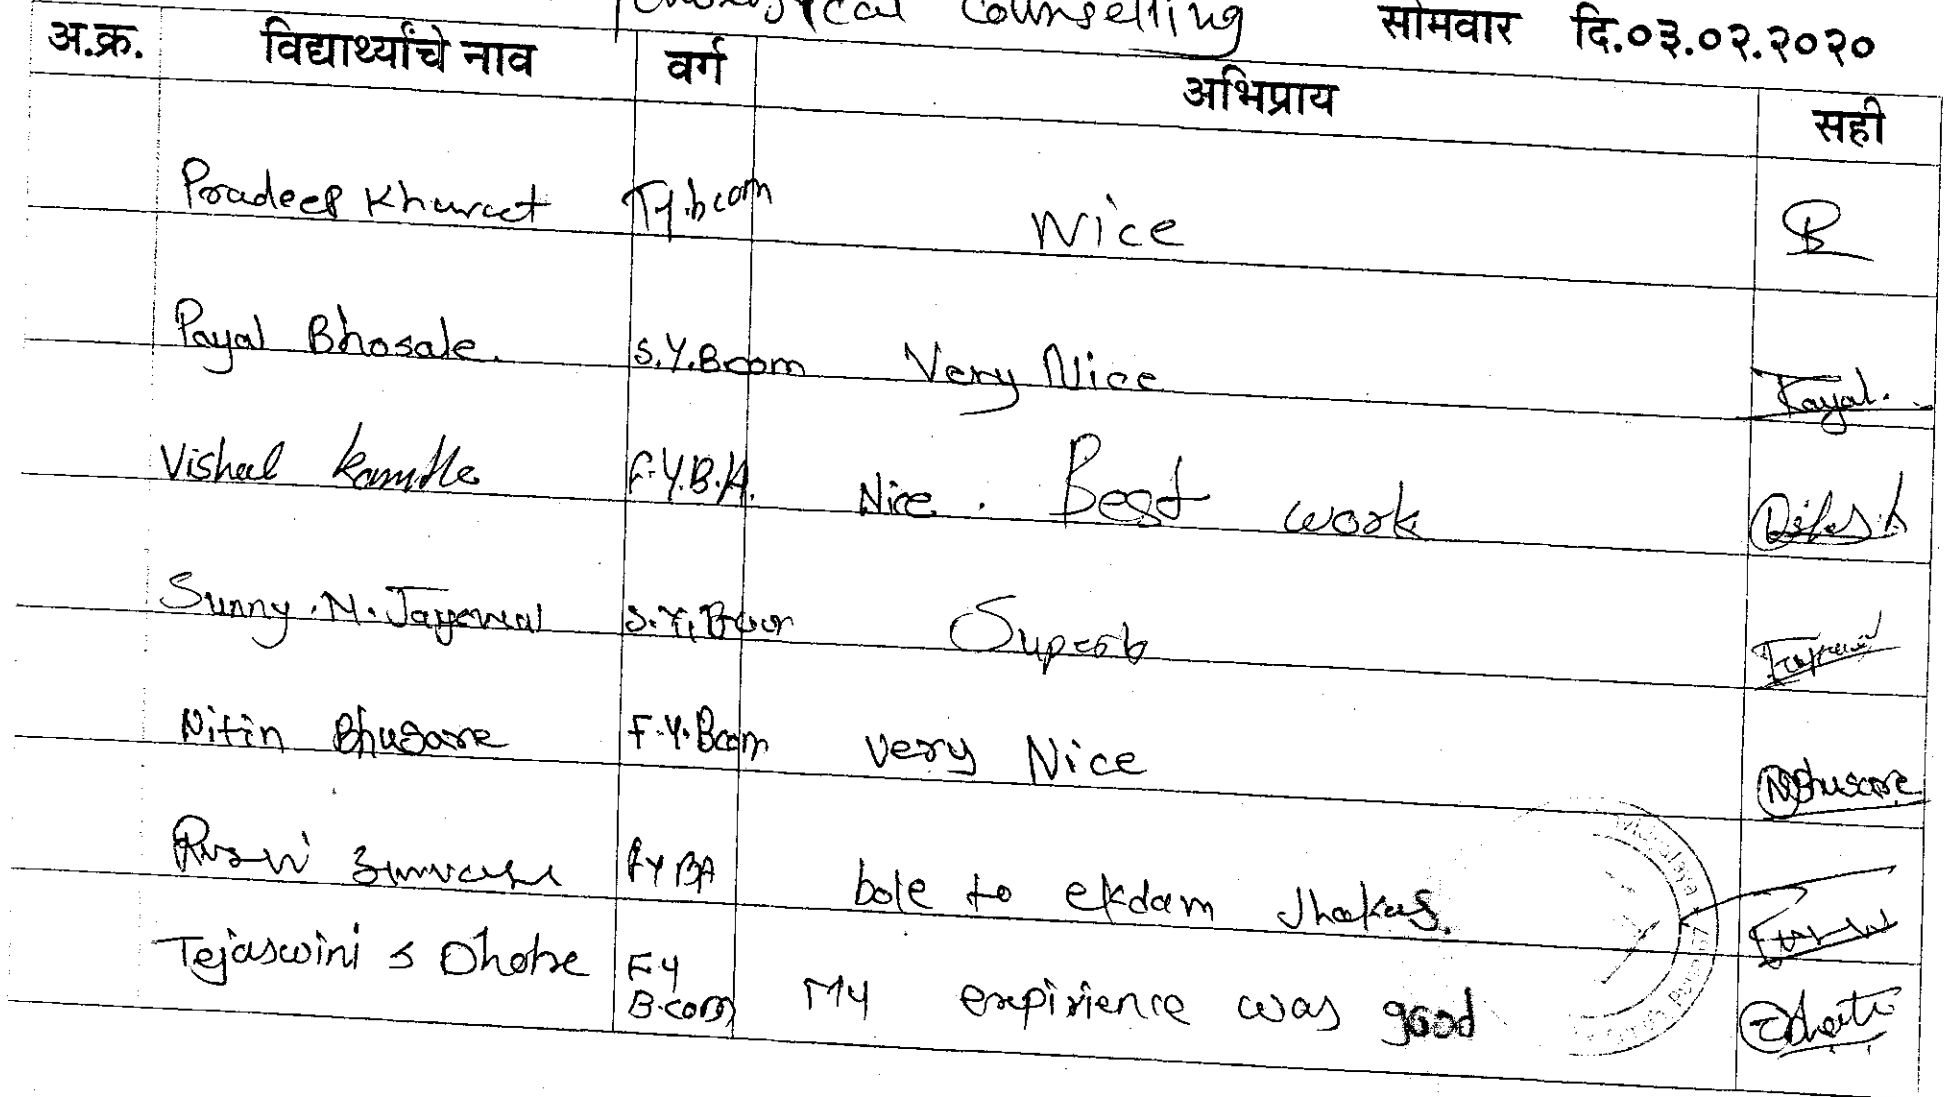 Counselling सोमवार दि.०३.०२.२०२०
अ.क्र. विद्यार्थ्यांचे नाव वर्ग अभिप्राय सही
Pradeep Kharat T.y.bcom Nice
Payal Bhosale. S.Y.Bcom Very Nice Payal.
Vishal Kamble F.Y.B.A. Nice. Best work
Sunny.M. S.Y.Bcom Superb
Nitin Bhusare F.Y.Bcom very Nice NBhusare
FYBA bole to ekdam Jhakas.
Tejaswini S Dhotre F.Y B.com My expirience was good